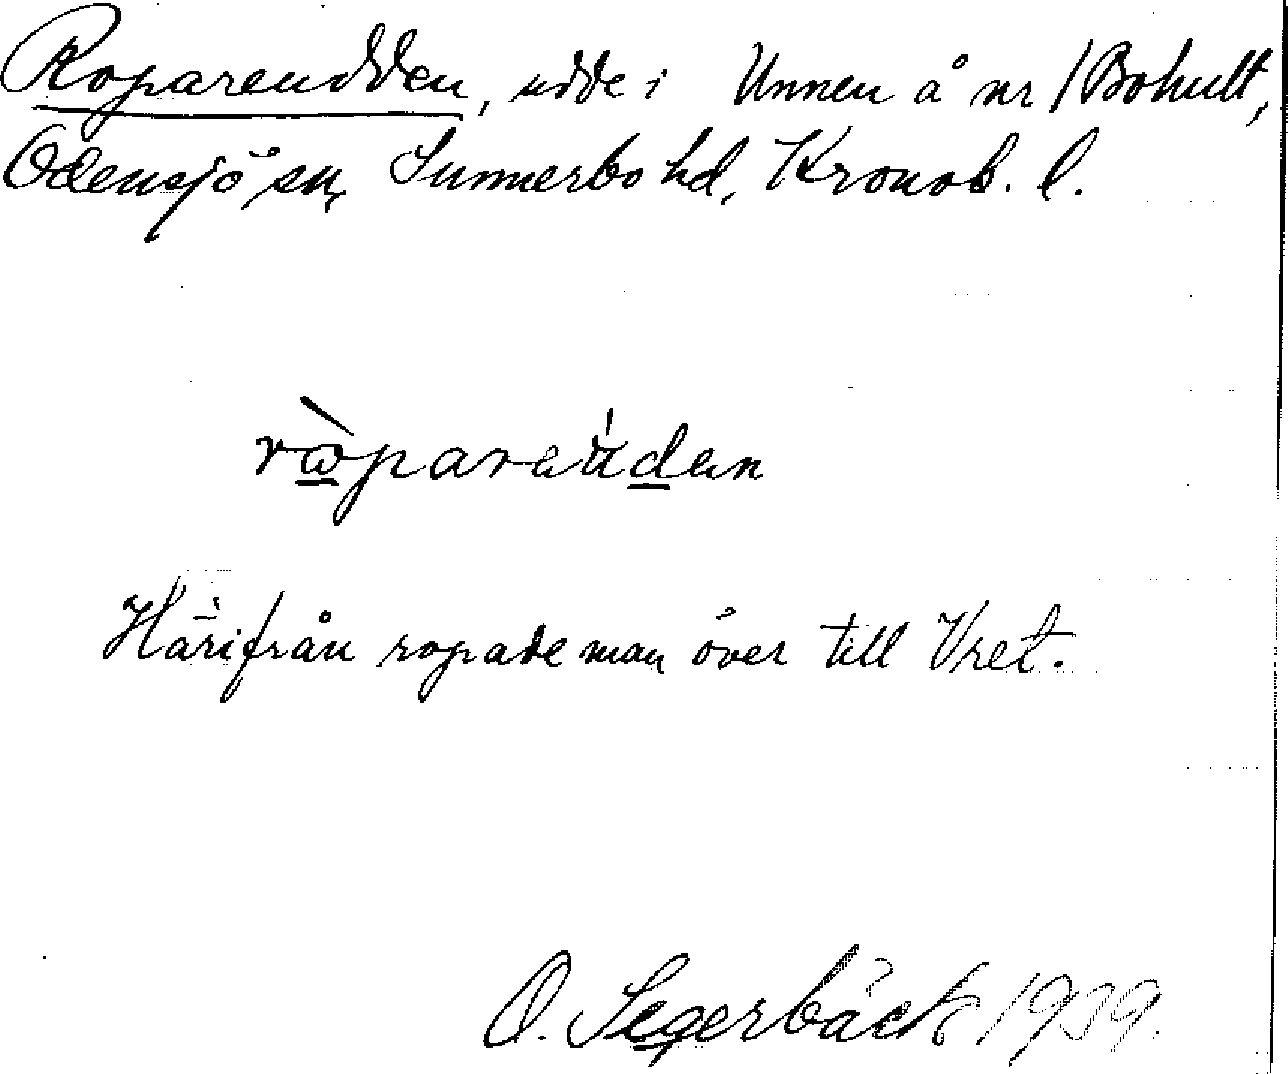 Roparendden, udde i Unnen å nr 1 Bohult,
Odensjö sn, Sunnerbo hd, Kronob. l.
ròparaúdan
Härifrån ropade man över till Vret.
O. Segerbäck 1939.